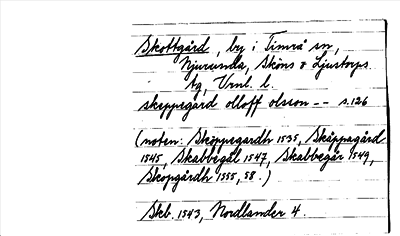 Skottgård, by i Timrå sn,
Njurunda, Sköns o Ljustorps
tg, Vrnl. l.
skeppsgard olloff olsson -- s. 126
(noten: Sköppsgardh 1535, Skåppagård
1545, Skabbegål 1547, Skabbegår 1549,
Skopgårdh 1555, 58.)
Skb. 1543, Nordlander 4.